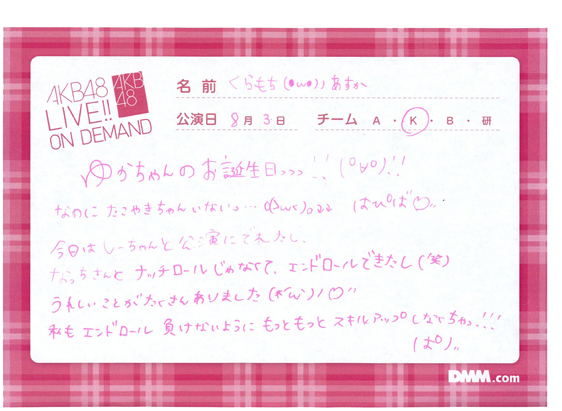 AKB48
LIVE!!
ON DEMAND
AKB
48
名前 くらもち(●ω●))あすか
公演日 8月3日 チーム A・K・B・研
ゆかちゃんのお誕生日っっっ!!(°∀°)!!
なのにたこやきちゃんいないっ… はぴぱ
今日はしーちゃんと公演にでれたし、
なっちさんと ナッチロールじゃなくて、エンドロールできたし(笑)
うれしいことがたくさんありました
私も エンドロール 負けないように もっともっと スキルアップしなくちゃっ!!!
(ぱ°)
DMM.com